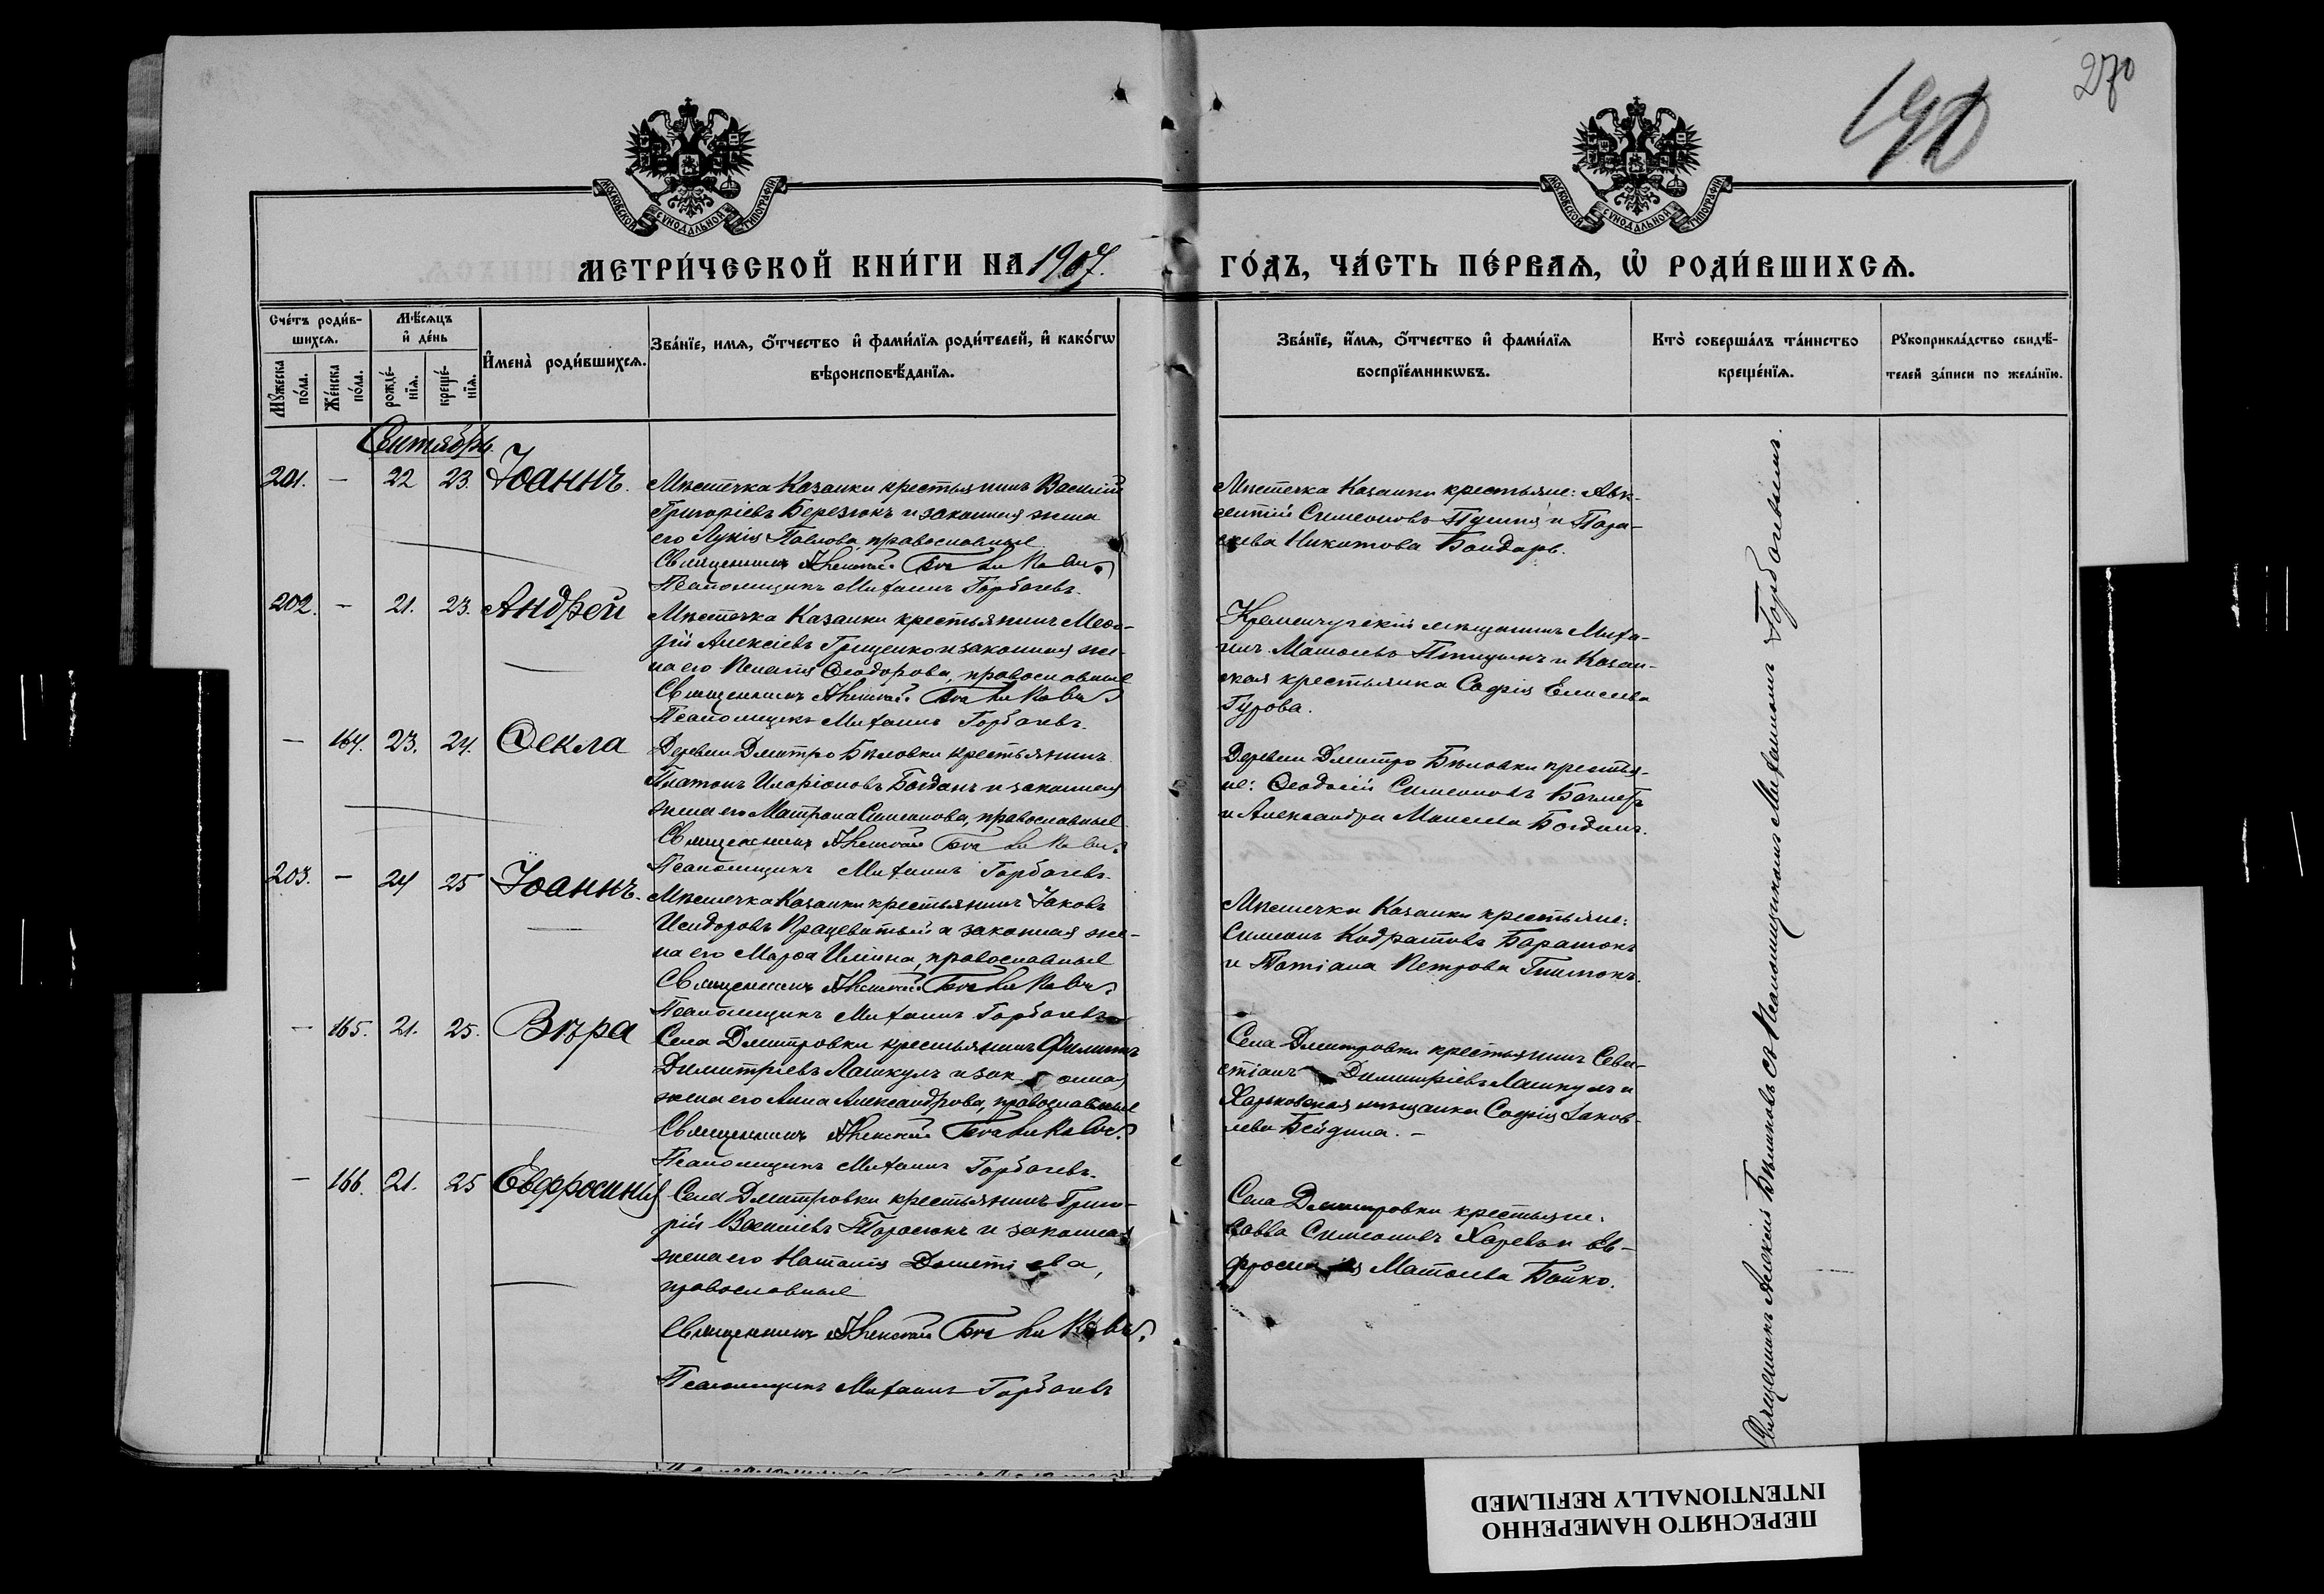 270
190
МОСКОВСКОЙ СѴНОДАЛЬНОЙ ТИПОГРАФІИ
МОСКОВСКОЙ СѴНОДАЛЬНОЙ ТИПОГРАФІИ
МЕТРИ́ЧЕСКОЙ КНИ́ГИ НА 1907.
ГО́ДЪ, ЧА́СТЬ ПЕ́РВАѦ, Ѽ РОДИ́ВШИХСѦ.
Сче́тъ роди́в-
шихсѧ.
Мꙋ́жеска по́ла.
Же́нска по́ла.
Мѣ́сѧцъ
и҆ де́нь
рожде́-
нїѧ.
креще́-
нїѧ.
И҆мена̀ роди́вшихсѧ.
Зва́нїе, имѧ, ѻ҆́тчество и҆ фами́лїѧ роди́телей, и҆ како́гѡ
вѣроисповѣ́данїѧ.
Зва́нїе, и҆́мѧ, ѻ҆́тчество и҆ фами́лїѧ
воспрїе́мникѡвъ.
Кто̀ соверша́лъ та́инство
креще́нїѧ.
Рꙋкоприкла́дство свидѣ́-
телей за́писи по жела́нїю.
Сентябрь.
201. — 22 23. Іоаннъ.
Мѣстечка Казанки крестьянинъ Василій
Григоріевъ Березюкъ и законная жена
его Лукія Павлова, православные
Священникъ Алексій
Псаломщикъ Михаилъ Горбачевъ.
Мѣстечка Казанки крестьяне: Авк-
сентій Симеоновъ и Пара-
скева Никитова Бондарь.
202. — 21. 23. Андрей
Мѣстечка Казанки крестьянинъ
Алексіевъ Грищенко и законная же-
на его Пелагія Ѳеодорова, православные
Священникъ Алексій
Псаломщикъ Михаилъ Горбачевъ.
Кременчугскій мѣщанинъ Миха-
илъ Матѳеевъ Птицынъ и Казан-
ская крестьянка Софія Елисеева
Гурова.
— 164. 23. 24. Ѳекла
Деревни Дмитро Бѣловки крестьянинъ
Платонъ Иларіоновъ Богданъ и законная
жена его Матрона Симеонова, православные
Священникъ Алексій
Псаломщикъ Михаилъ Горбачевъ.
Деревни Дмитро Бѣловки крестья-
не: Ѳеодосій Симеоновъ
и Александра Моисеева Богданъ.
203. — 24 25 Іоаннъ.
Мѣстечка Казанки крестьянинъ Іаковъ
Исидоровъ и законная же-
на его Марѳа Ильина, православные
Священникъ Алексій
Псаломщикъ Михаилъ Горбачевъ
Мѣстечка Казанки крестьяне:
Симеонъ Кодратовъ
и Татіана Петрова
— 165. 21. 25. Вѣра
Села Дмитровки крестьянинъ Филиппъ
Димитріевъ Лашкулъ и законная
жена его Анна Александрова, православные
Священникъ Алексій
Псаломщикъ Михаилъ Горбачевъ.
Села Дмитровки крестьянинъ Сева-
стіанъ Димитріевъ Лашкулъ и
Харьковская мѣщанка Софія Іаков-
лева Бейдина. —
— 166. 21. 25 Евфросинія
Села Дмитровки крестьянинъ Григо-
рій Васильевъ Тарасюкъ и законная
жена его Наталія
православные
Священникъ Алексій
Псаломщикъ Михаилъ Горбачевъ
Села Дмитровки крестьяне:
Савва Симеоновъ и Ев-
фросинія Матѳеева Бойко.
Священникъ Алексій Бѣликовъ съ Псаломщикомъ Михаиломъ Горбачевымъ.
ПЕРЕСНЯТО НАМЕРЕННО
INTENTIONALLY REFILMED